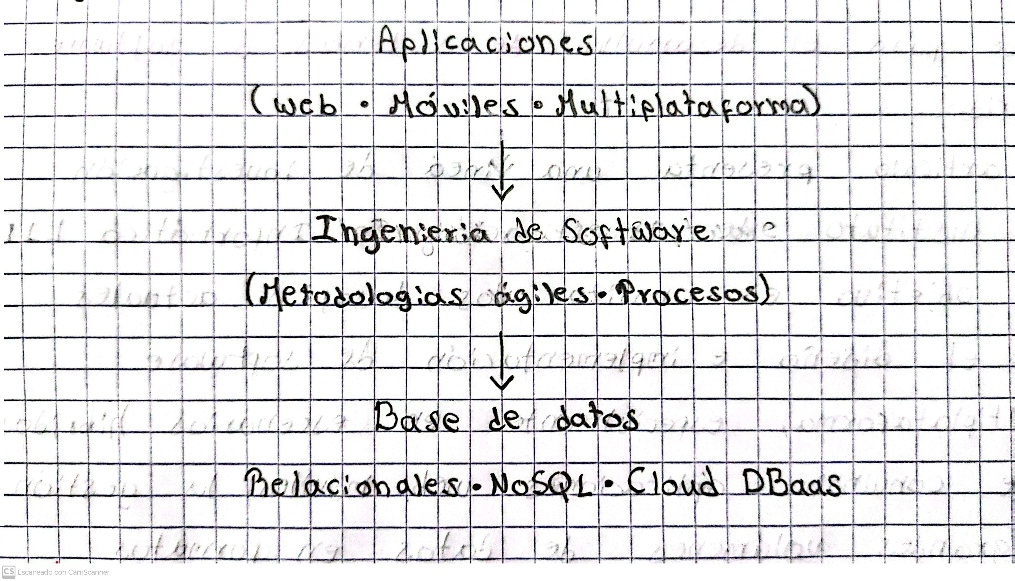 Aplicaciones
(web • Móviles • Multiplataforma)
Ingenieria de Software
(Metodologias ágiles • Procesos)
Base de datos
Relacionales • NoSQL • Cloud DBaas
CS Escaneado con CamScanner